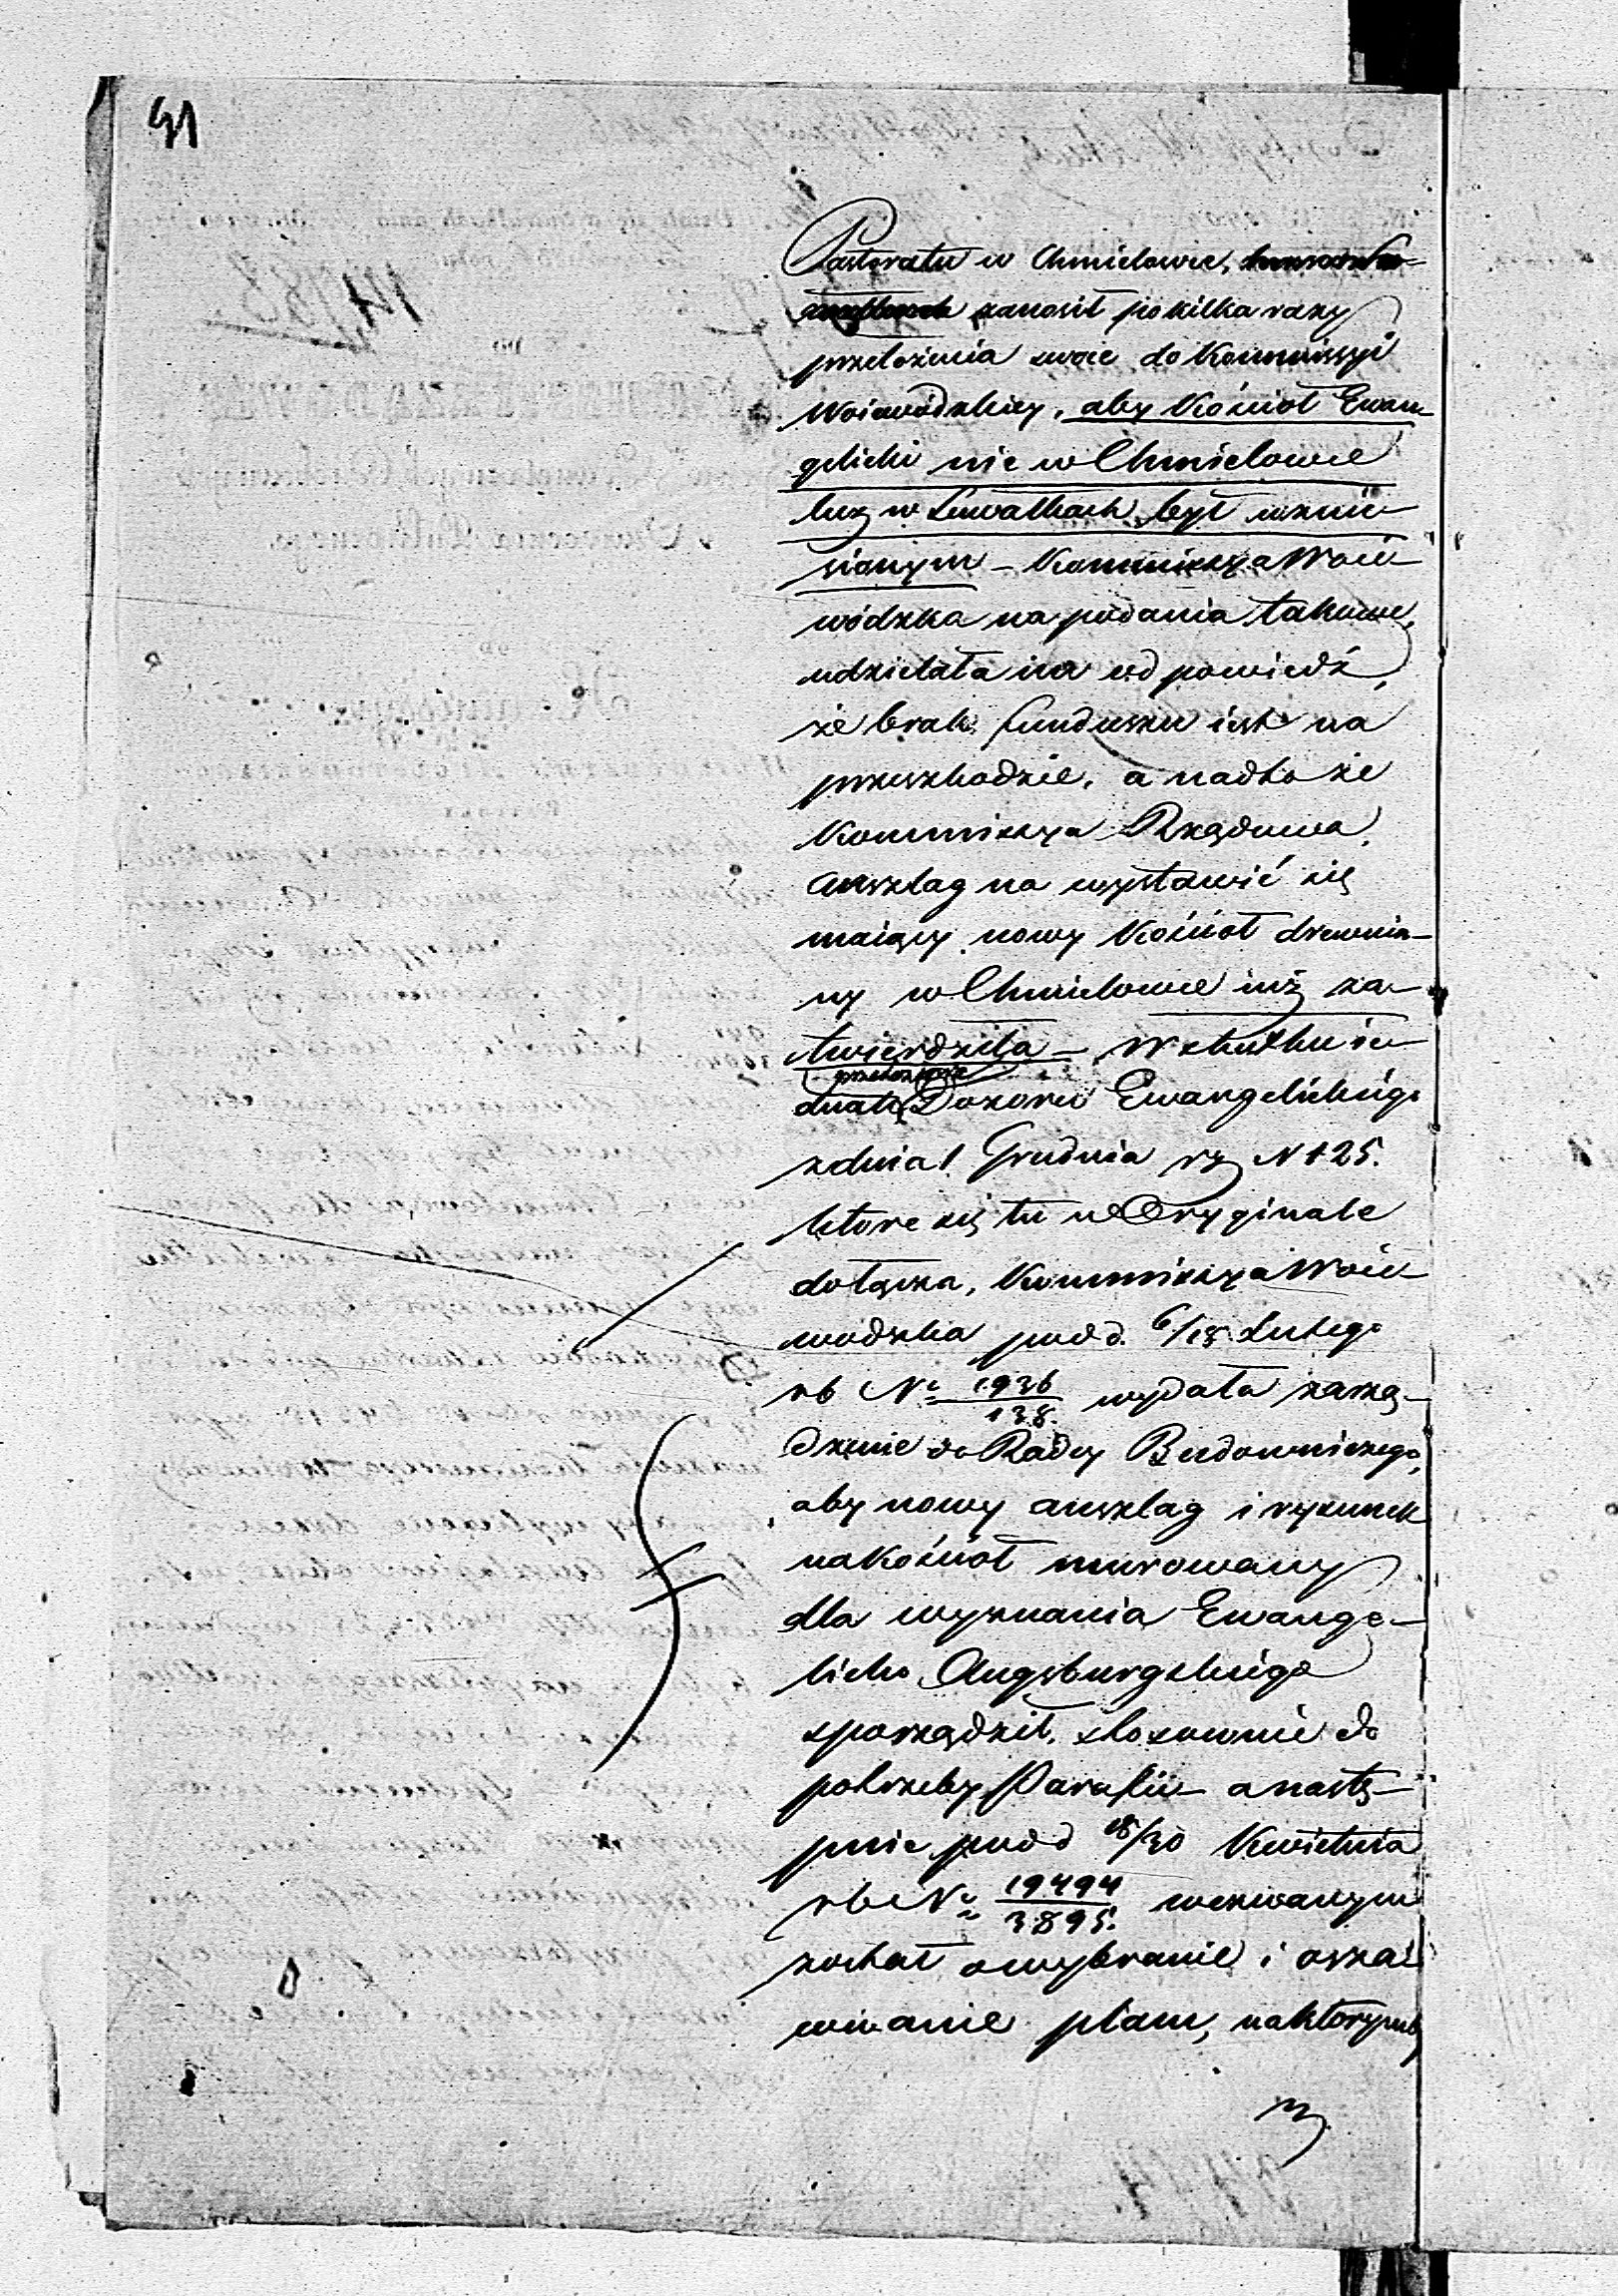 91
Pastoratu w Chmielowie,
zanosił po kilka razy
przełożenia swoie do Kommissyi
Woiewódzkiey, aby Kościoł Ewan-
gelicki nie w Chmielowie
lecz w Suwałkach był wznie-
sionym – Kommissya Woie-
wódzka na podania takowe,
udzielała iey odpowiedź,
że brak funduszu iest na
przeszkodzie, a nadto że
Kommissya Rządowa,
anszlag na wystawić się
maiący nowy Kościoł drewnia-
ny w Chmielowie iuż za-
twierdziła – Wskutku ie-
przełożenia
dnak Dozoru Ewangelickiego
z dnia 1 Grudnia rz N 125.
ktore się tu w Oryginale
dołącza, Kommissya Woie-
wodzka pod d. 6/18 Lutego
rb N: 1936/138. wydała zarzą-
dzenie do Radcy Budowniczego,
aby nowy anszlag i rysunek
na Kościoł murowany
dla wyznania Ewange-
licko Augsburgskiego
sporządził, stosownie do
potrzeby Parafii – a nastę-
pnie pod d 18/30 Kwietnia
rb N: 19494/3895. wezwanym
został o wybranie i osza-
wanie placu, na ktorymby